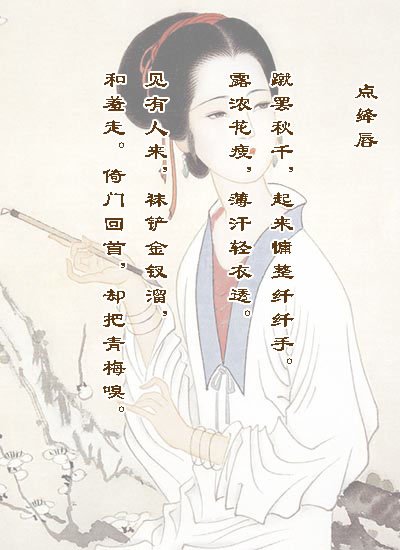 点绛唇
蹴罢秋千，起来慵整纤纤手。
露浓花瘦，薄汗轻衣透。
见有人来，袜铲金钗溜，
和羞走。倚门回首，却把青梅嗅。